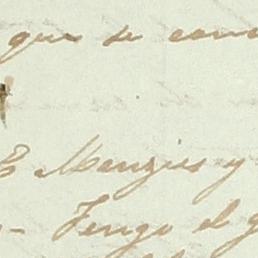 que se
E Menzies y
Tengo el g